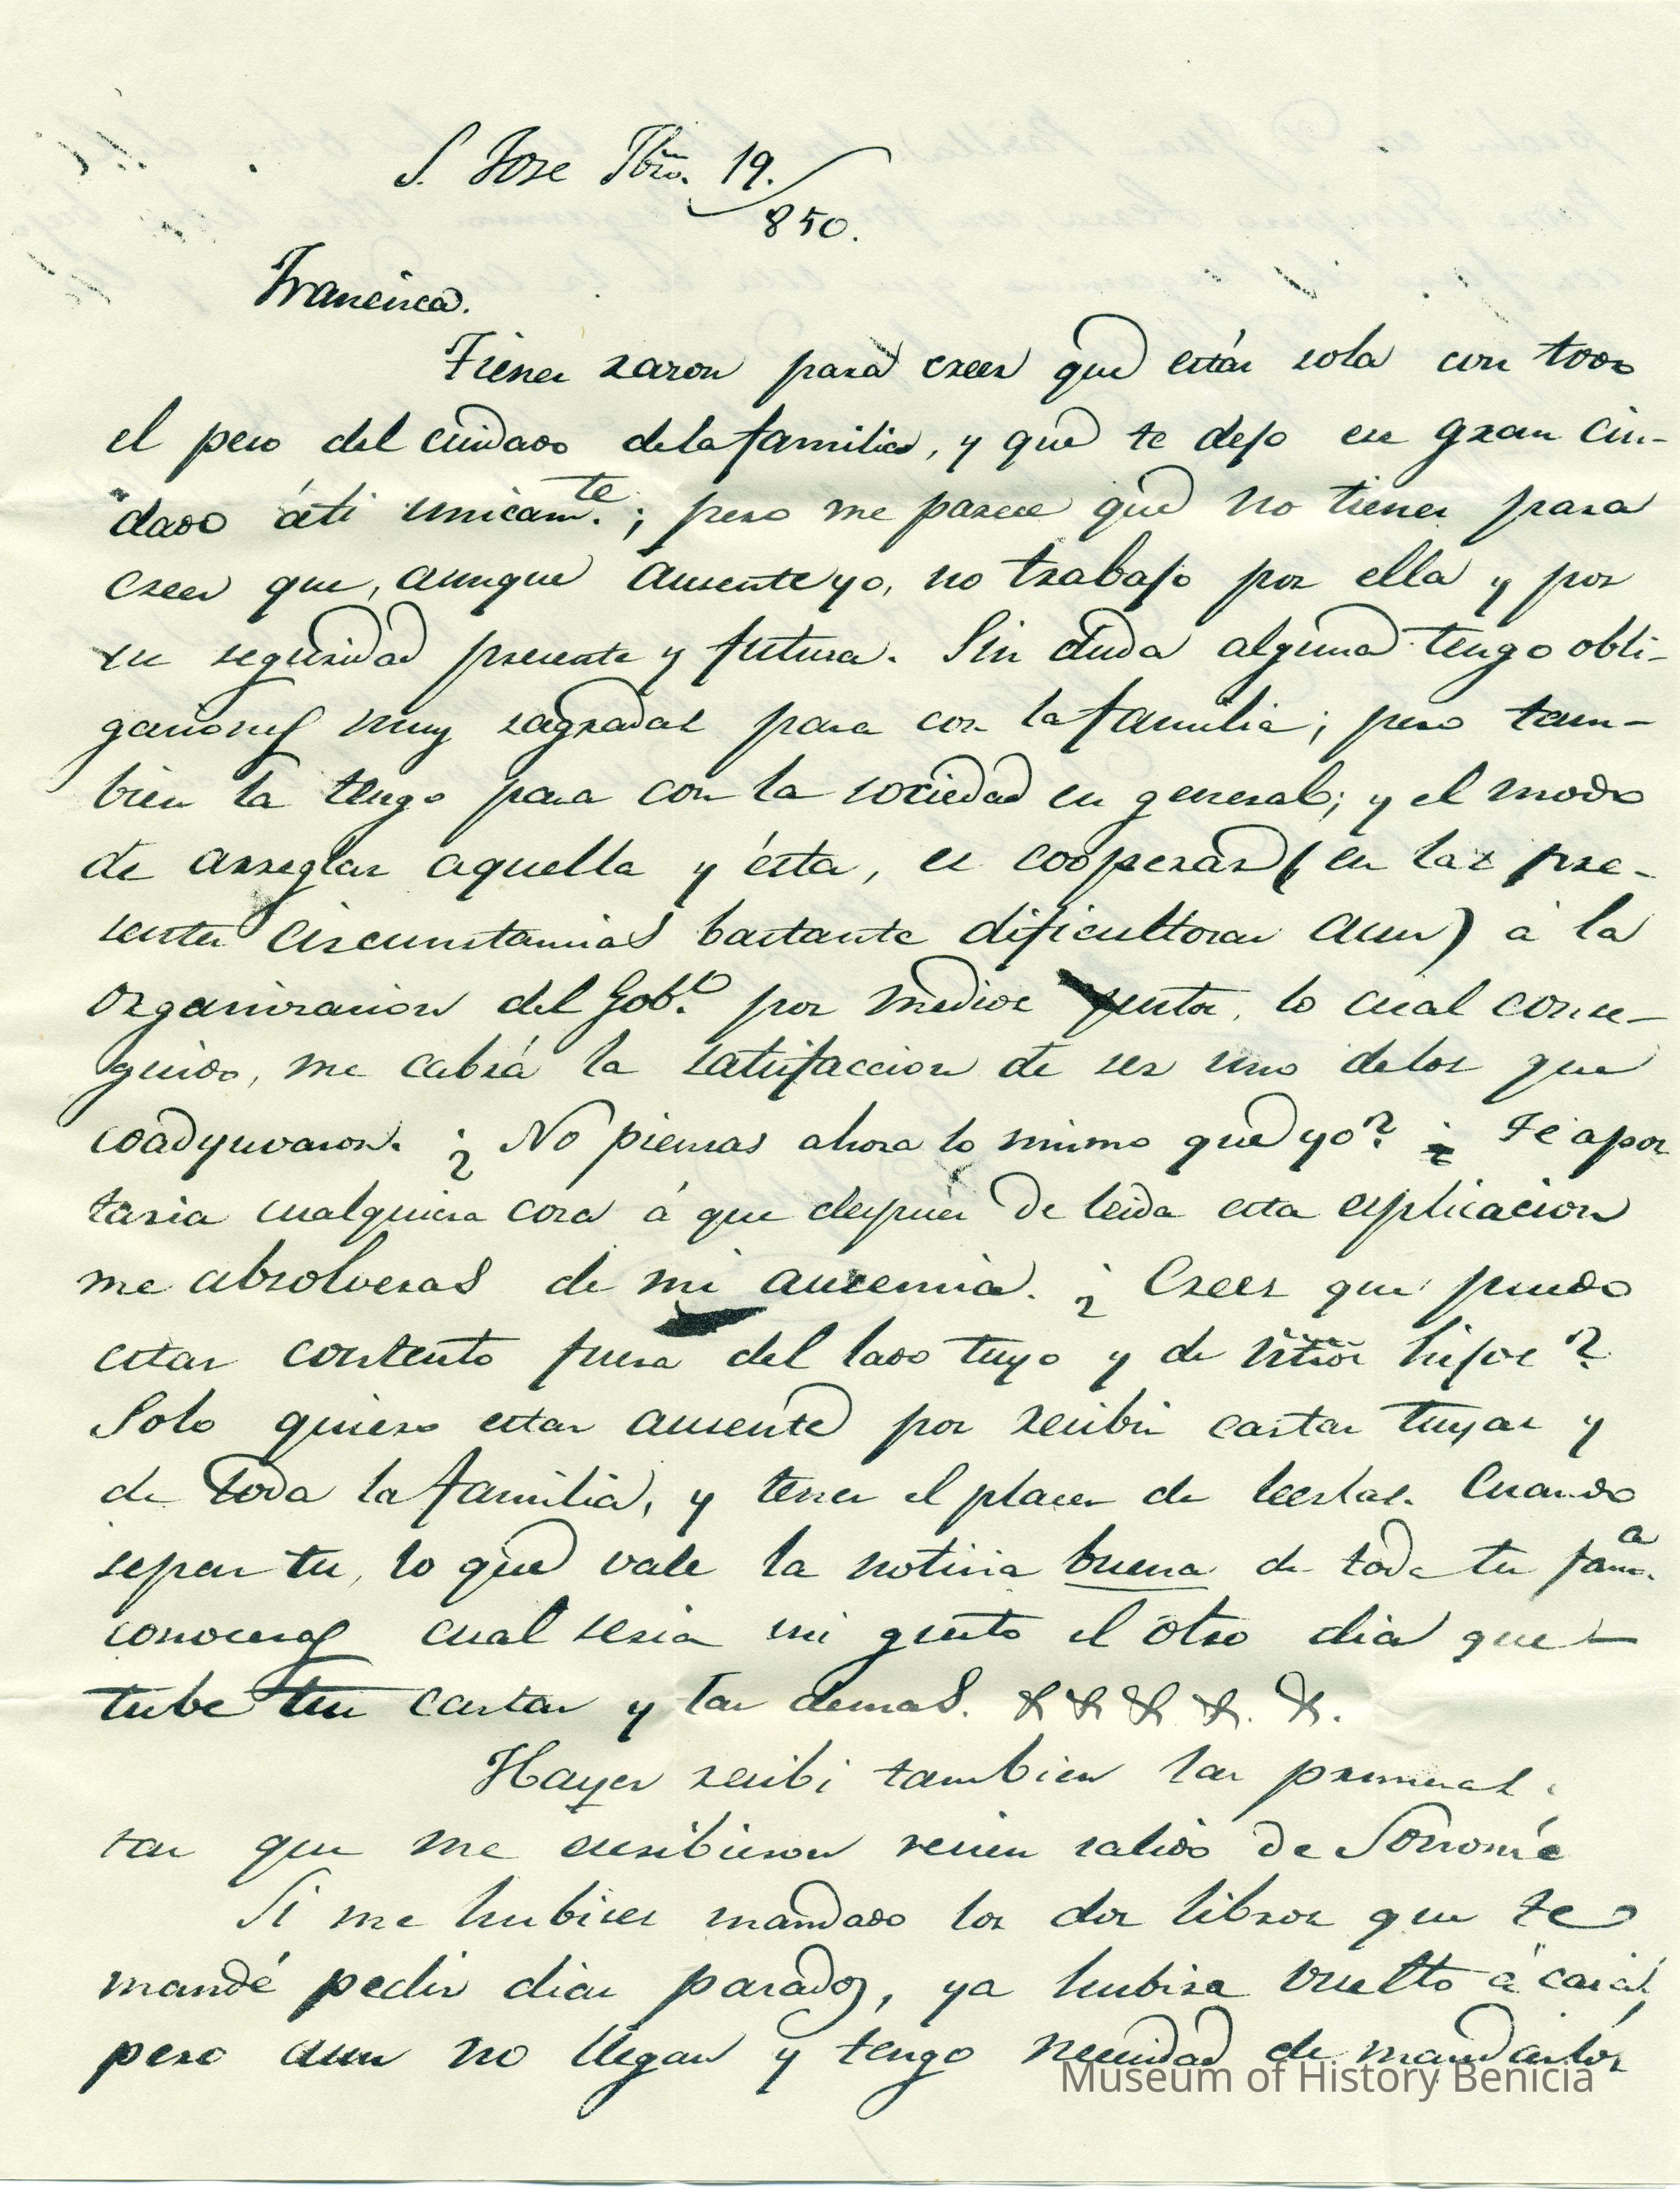 S. Jose Fbro. 19.
850.
Francisca.
Tienes razon para creer que estás sola con todo
el peso del cuidado dela familia, y que te dejo ese gran cui-
"dado áti unicamte.; pero me parece que no tienes para
creer que, aunque ausente yo, no trabajo por ella y por
su seguridad presente y futura. Sin duda alguna tengo obli-
gaciones muy sagradas para con la familia; pero tam-
bien la tengo para con la sociedad en general; y el modo
de arreglar aquella y ésta, es cooperar (en las pre-
sentes circunstancias bastante dificultosas aun) á la
organizacion del Gobo. por medios justos, lo cual conse-
guido, me cabrá la satisfaccion de ser uno delos que
coadyuvaron. ¿No piensas ahora lo mismo que yo? ¿ Te apos
taria cualquiera cosa á que despues de leida esta esplicacion
me absolveras de mi ausencia. ¿Crees que puedo
estar contento fuera del lado tuyo y de ntros hijos?
Solo quiero estar ausente por recibir cartas tuyas y
de toda la familia, y tener el placer de leerlas. Cuando
sepas tu, lo que vale la noticia buena de toda tu fama.
conoceras cual seria mi gusto el otro dia que
tube tus cartas y las demas. X X X X. X.
Hayer recibi tambien las primeras
tas que me escribieron recien salido de Sonoma
Si me hubieses mandado los dos libros que te
mandé pedir dias pasados, ya hubiera vuelto á casa,
pero aun no llegan y tengo necesidad de mandarlos
Museum of History Benicia